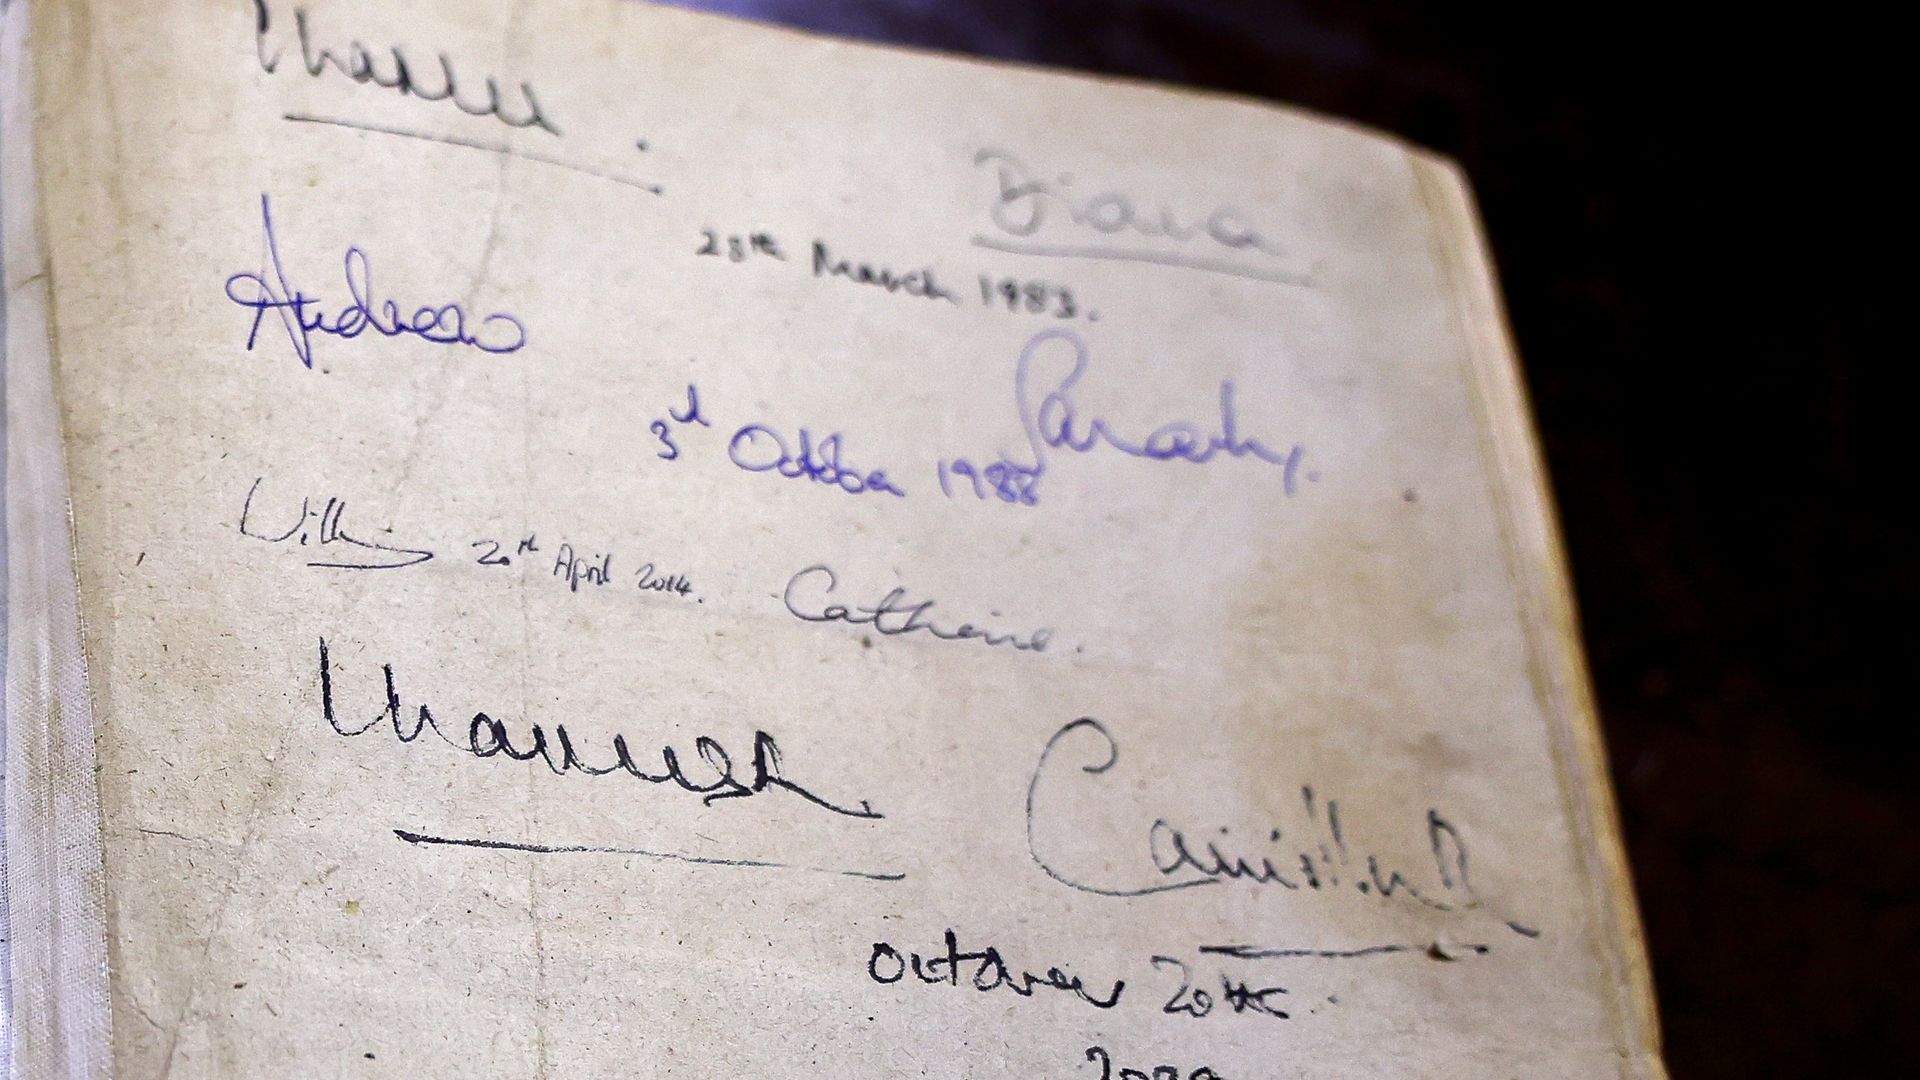 Charles.
Diana
28th March 1983.
Andrew
Sarah.
3rd October 1988
William 20th April 2014. Catherine.
Charles R
Camilla R
October 20th.